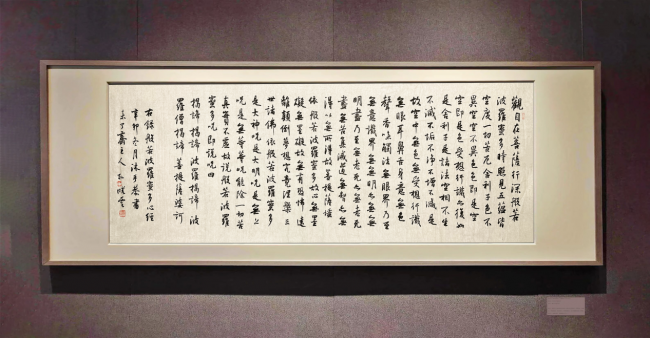 觀自在菩薩行深般若
波羅蜜多時照見五蘊皆
空度一切苦厄舍利子色不
異空空不異色色即是空
空即是色受想行識亦復如
是舍利子是諸法空相不生
不滅不垢不淨不增不減是
故空中無色無受想行識
無眼耳鼻舌身意無色
聲香味觸法無眼界乃至
無意識界無無明亦無無
明盡乃至無老死亦無老死
盡無苦集滅道無智亦無
得以無所得故菩提薩埵
依般若波羅蜜多故心無罣
礙無罣礙故無有恐怖遠
離顛倒夢想究竟涅槃三
世諸佛依般若波羅蜜多
是大神咒是大明咒是無上
咒是無等等咒能除一切苦
真實不虛故說般若波羅
蜜多咒即說咒曰
揭諦揭諦波羅揭諦波
羅僧揭諦菩提薩婆訶
右錄般若波羅蜜多心經
辛卯冬月沐手恭書
未了齋主人